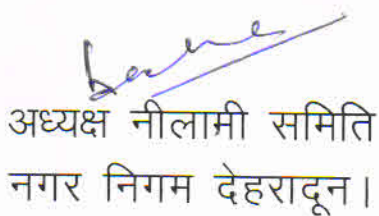 अध्यक्ष नीलामी समिति
नगर निगम देहरादून।